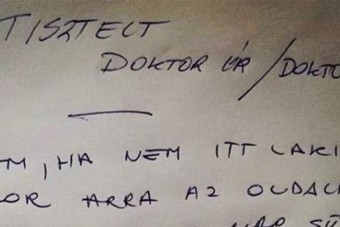 TISZTELT
DOKTOR ÚR / DOKTO
M, HA NEM ITT LAKI
OR ARRA AZ OLDAL